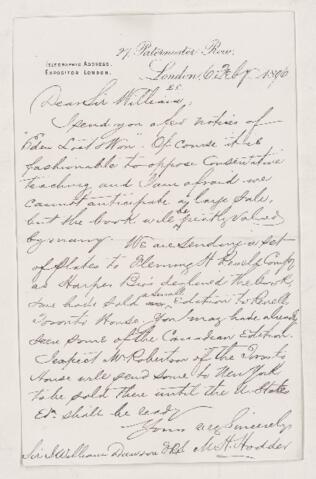 27, Paternoster Row,
TELEGRAPHIC ADDRESS,
EXPOSITOR LONDON.
London, 6th Feby 1896
Dear Sir William,
I send you a few notices of
"Eden Lost & Won". Of course it is
fashionable to oppose Conservative
teaching and I am afraid we
cannot anticipate a large sale,
but the book will be greatly valued
by many. We are sending a set
of plates to Fleming H Revell Compy
as Harper Bros declined the book,
& we have sold a small Edition to Revells
Toronto House. You may have already
seen some of the Canadian Edition.
I expect Mr Robertson of the Toronto
House will send some to New York
to be sold there until the U. States
Edn. shall be ready
Yours very Sincerely
Sir J William Dawson M. H. Hodder